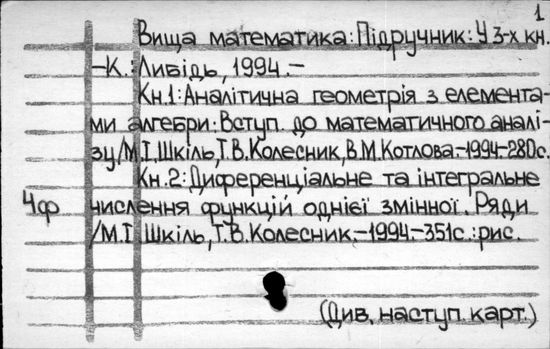 1
Вища математика: Підручник: У 3-х кн.
-К.: Либідь, 1994.-
Кн.1: Аналітична геометрія з елемента-
ми алгебри: Вступ. до математичного аналі-
зу/М.І.Шкіль, Т.В.Колесник, В.М.Котлова.-1994-280с.
Кн.2: Диференціальне та інтегральне
4ф числення функцій однієї змінної. Ряди
/М.І. Шкіль, Т.В.Колесник.-1994.-351с.:рис.
(Див. наступ. карт.)